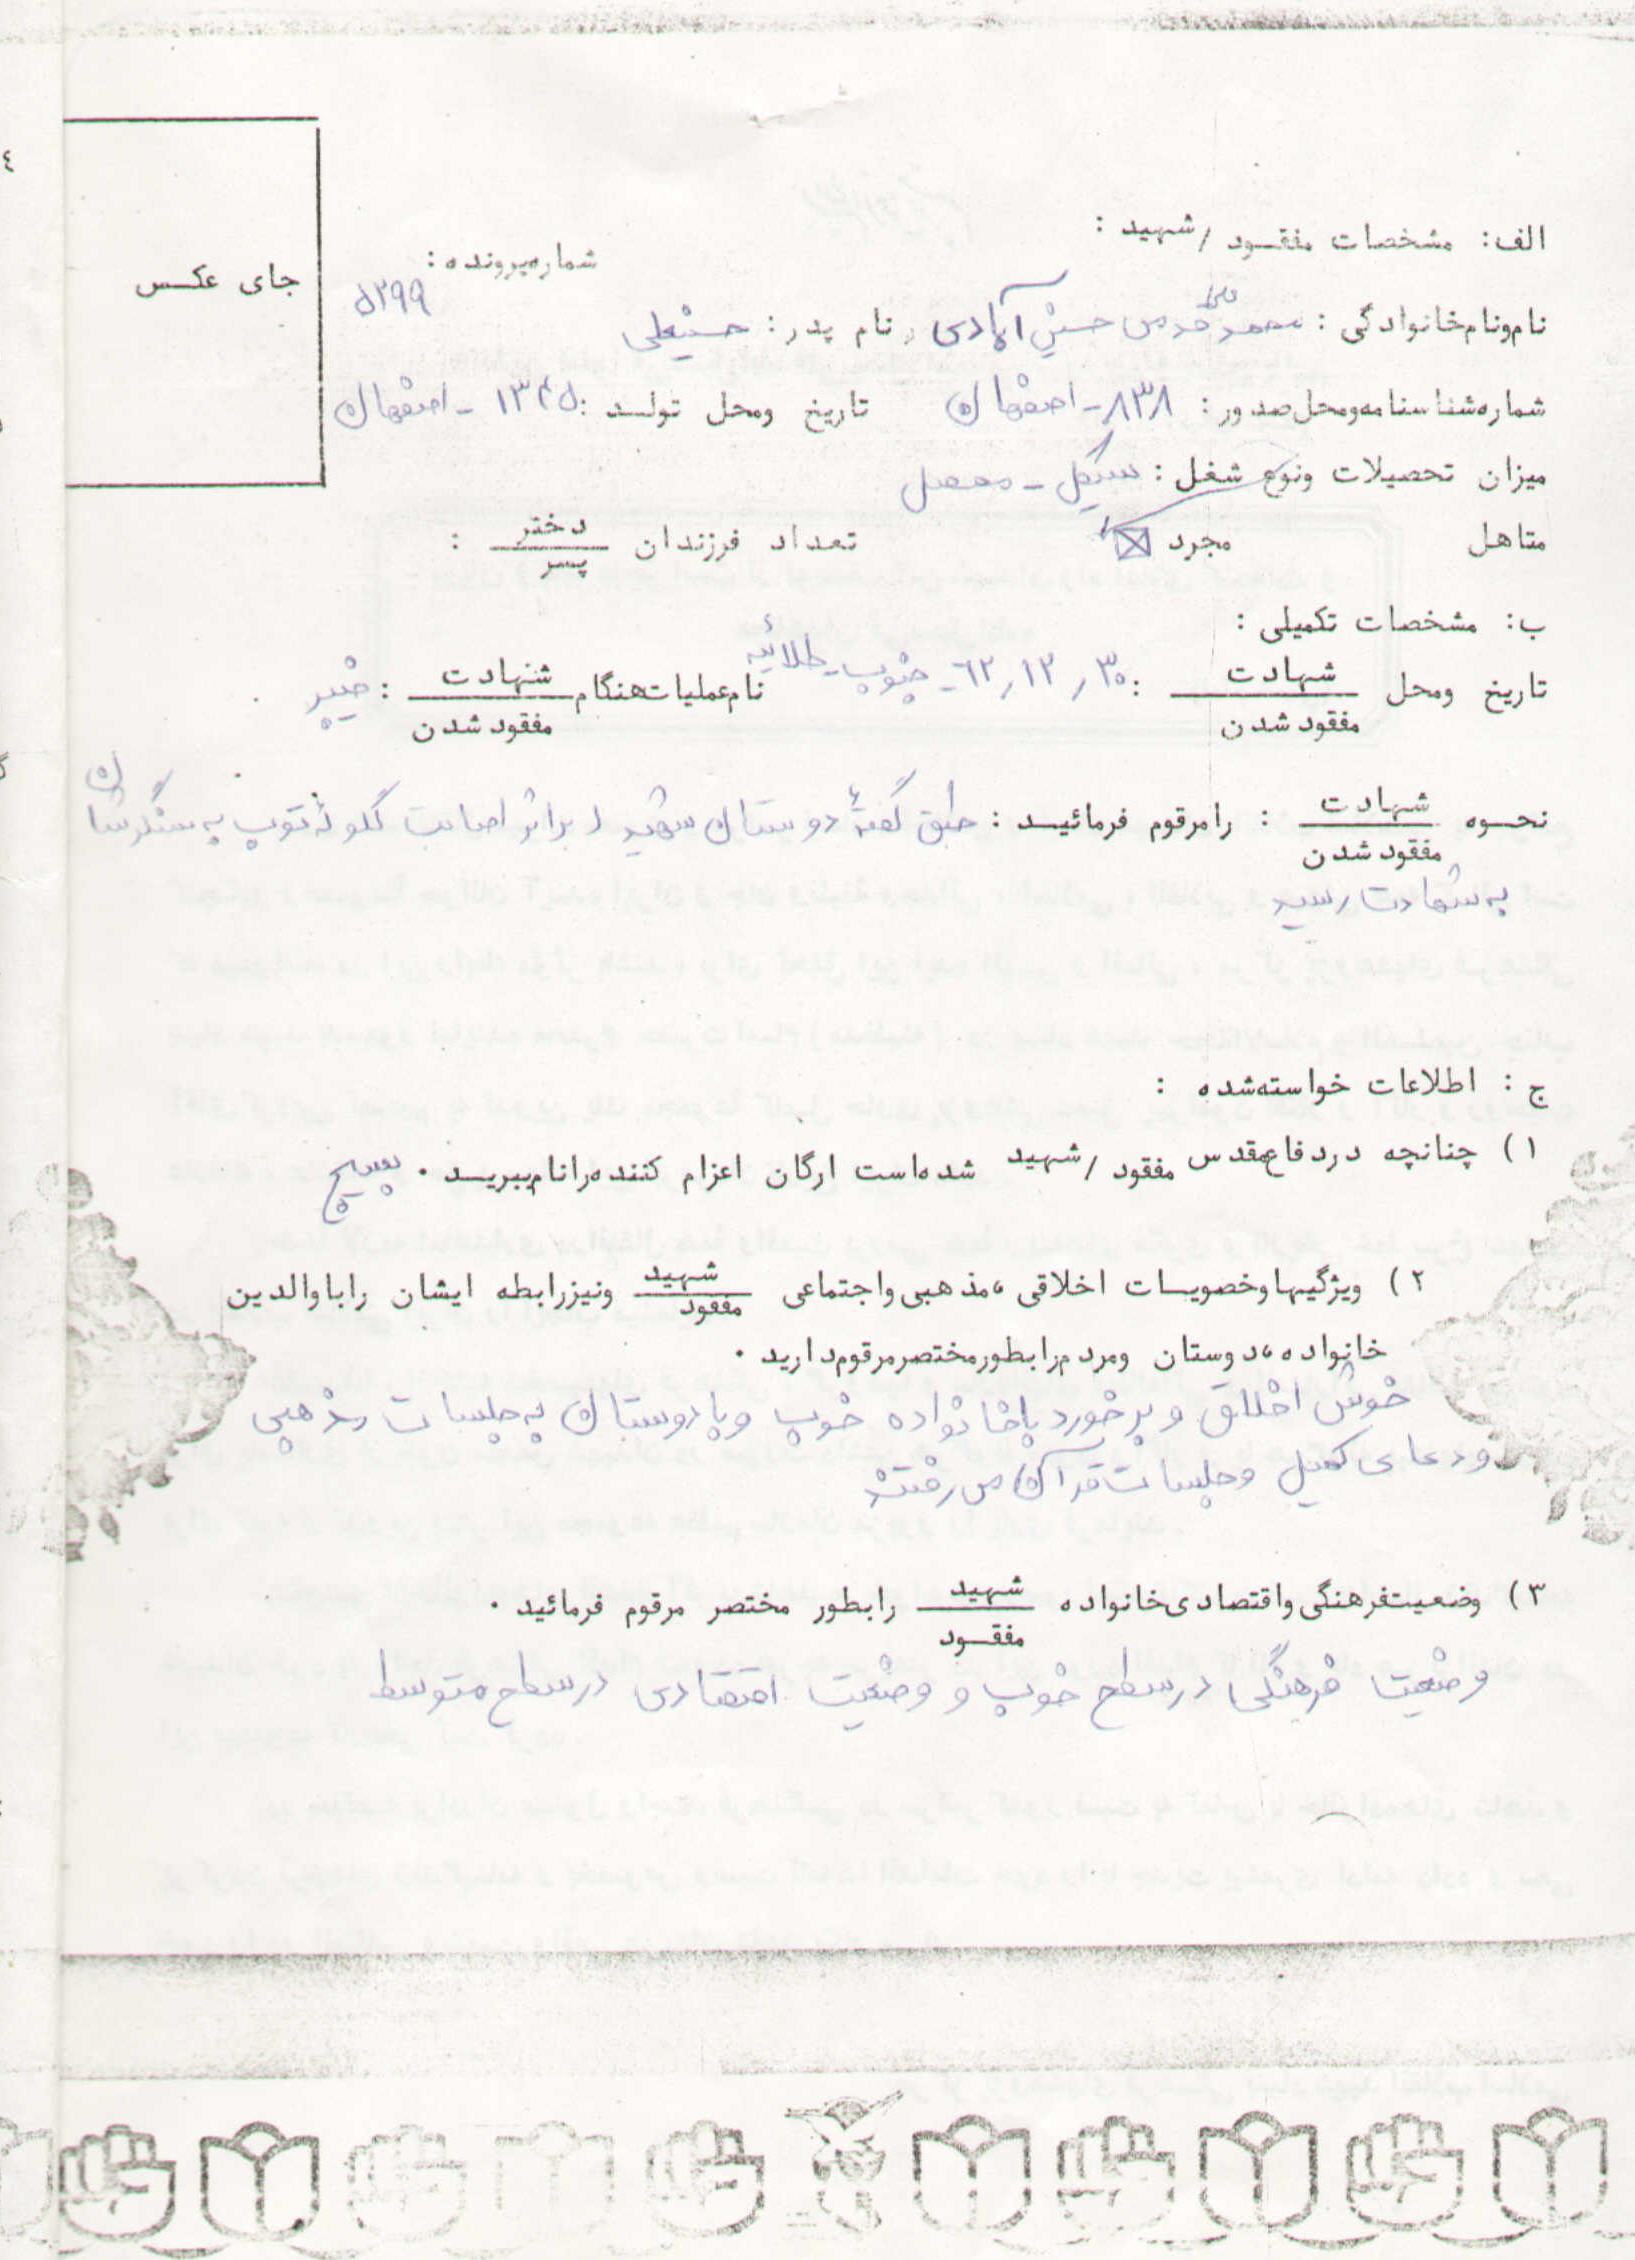 الف: مشخصات مفقود / شهید :
شماره پرونده :
۵۲۹۹
جای عکس
نام و نام خانوادگی : محمد علی قدمی حسین آبادی نام پدر : حسینعلی
شماره شناسنامه و محل صدور : ۸۳۸ - اصفهان تاریخ و محل تولد : ۱۳۴۵ - اصفهان
میزان تحصیلات و نوع شغل : سیکل - محصل
متاهل مجرد ☒ تعداد فرزندان دختر / پسر :
ب: مشخصات تکمیلی :
تاریخ و محل شهادت / مفقود شدن : ۶۲/۱۲/۳۰ - جنوب - طلائیه نام عملیات هنگام شهادت / مفقود شدن : خیبر
نحوه شهادت / مفقود شدن : را مرقوم فرمائید : طبق گفتهٔ دوستان شهید بر اثر اصابت گلولهٔ توپ به سنگرشان
به شهادت رسید
ج : اطلاعات خواسته شده :
۱) چنانچه در دفاع مقدس مفقود / شهید شده است ارگان اعزام کننده را نام ببرید . بسیج
۲) ویژگیها و خصوصیات اخلاقی ، مذهبی و اجتماعی شهید / مفقود و نیز رابطه ایشان را با والدین
خانواده ، دوستان و مردم را بطور مختصر مرقوم دارید .
خوش اخلاق و برخورد با خانواده خوب و با دوستان به جلسات مذهبی
و دعای کمیل و جلسات قرآن می رفتند
۳) وضعیت فرهنگی و اقتصادی خانواده شهید / مفقود را بطور مختصر مرقوم فرمائید .
وضعیت فرهنگی در سطح خوب و وضعیت اقتصادی در سطح متوسط